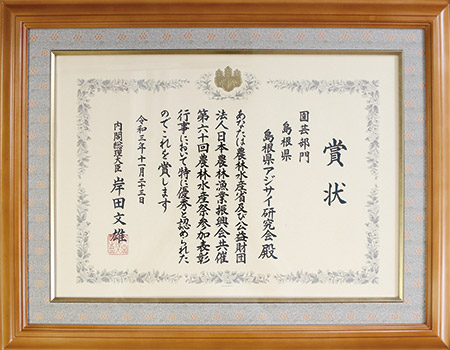 賞状
園芸部門
島根県
島根県アジサイ研究会殿
あなたは農林水産省及び公益財団
法人日本農林漁業振興会共催
第六十回農林水産祭参加表彰
行事において特に優秀と認められた
のでこれを賞します
令和三年十一月二十三日
内閣総理大臣 岸田文雄